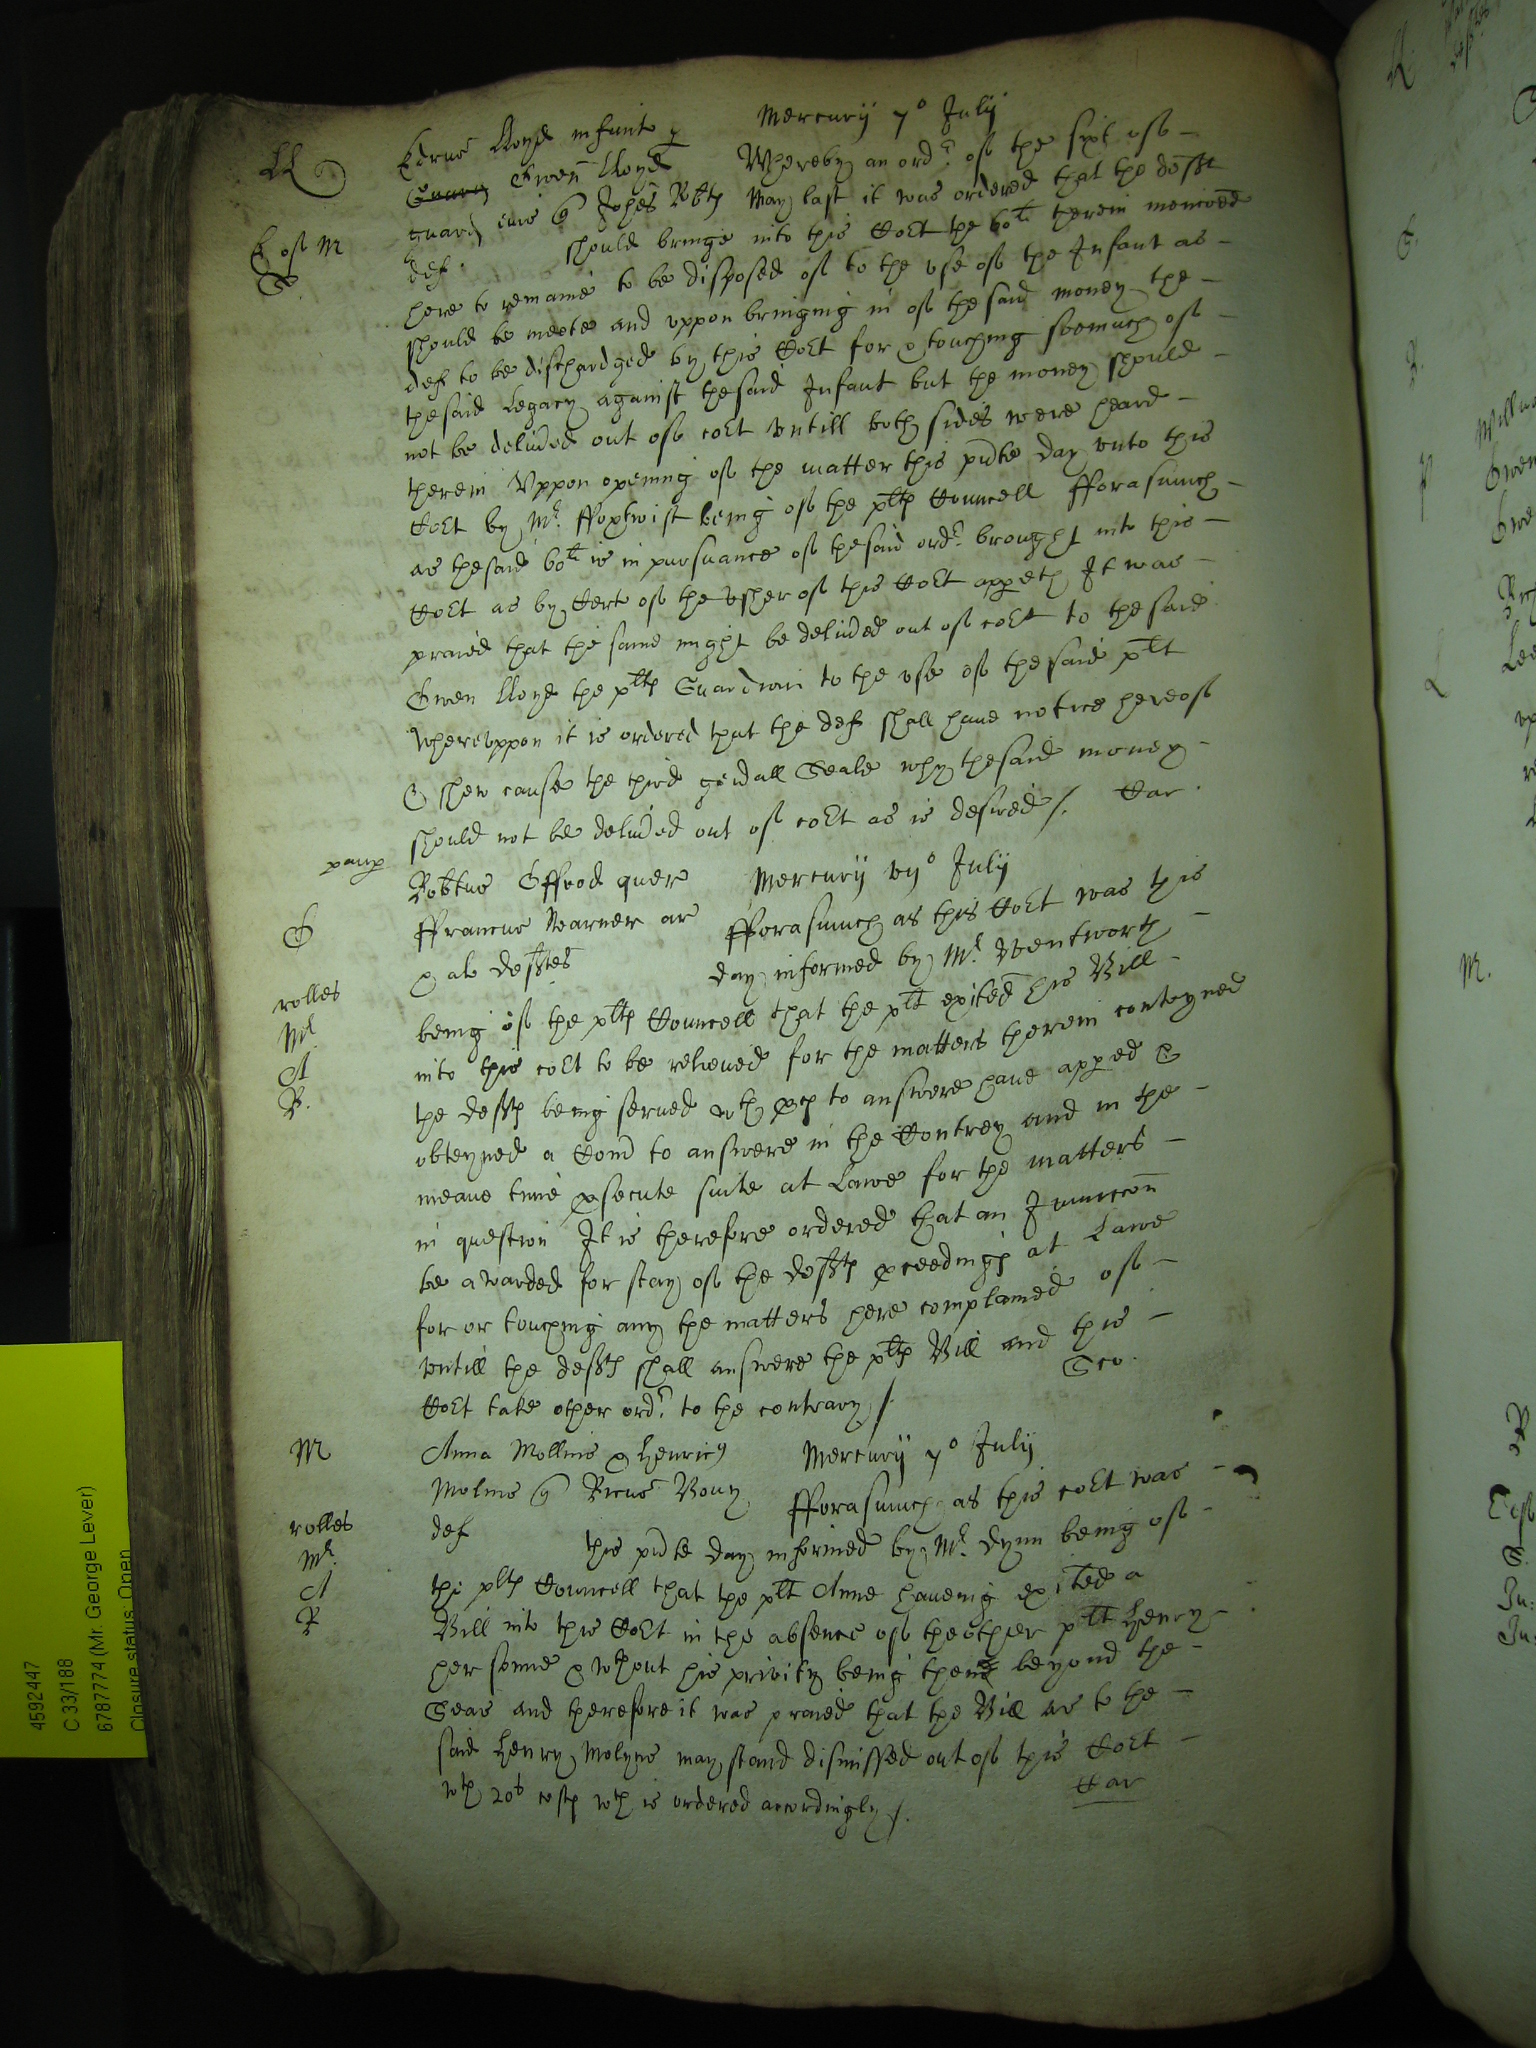 Ll
Edrus Lloyd infante p Mercurij 7o July
Gwen Lloyd Whereby an ordr. of the sixt of
guard eius Johes Robts May last it was ordered that the deft
E of M
def. should bringe into this Cort the 60li therein menconed
here to remaine to be disposed of to the use of the Infant as
should be meete and uppon bringing in of the said money the
def to be dischardged by this Cort for & touching soemuch of
the said Legacy against the said Infant but the money should
not be delived out of cort untill both sides were heard
therein Uppon opening of the matter this pnte day unto this
Cort by Mr. Foxtwist being of the plts Councell fforasmuch
as the said 60li is in pursuance of the said ordr. brought into this
Cort as by Cert of the Usher of this Cort appeth It was
praied that the same might be delived out of cort to the said
Gwen Lloyd the plts Guardian to the use of the said plt
whereuppon it is ordered that the def shall have notice hereof
& shew cause the third gendall Seale why the said money
should not be delived out of cort as is desired /. Car.
paup
Robtus Gffrod quer Mercurij vijo July
G
Franciscus Warner ar fforasmuch as this Cort was this
& al deftes day informed by Mr Wentworth
rolles
being of the plts Councell that the plt exited his Bill
Mr
into this cort to be relieved for the matters therein conteyned
A
the defts being served wth pces to answere have apped &
R.
obteyned a Com to answere in the Contrey and in the
meane time psecute suite at Lawe for the matters
in question It is therefore ordered that an Iniunccon
be awarded for stay of the defts pceedings at Lawe
for or touching any the matters here complained of
untill the defts shall answere the plts Bill and this
Cort take other ordr. to the contrary /. Geo.
M
Anna Mollins & Henricus Mercurij 7o July
Molins Ricus Bouy fforasmuch as this cort was
rolles
def this pnte day informed by Mr. Dynn being of
Mr.
the plts Councell that the plt Anne haveing exited a
A
Bill into this Cort in the absence of the other plt Henry
R
her sonne & wthout his privity being then beyond the
Seas and therefore it was praied that the Bill as to the
said Henry Molyns may stand dismissed out of this Cort
wth 20s costs wch is ordered accordingly /. Car
4592447
C 33/188
6787774 (Mr. George Lever)
Closure status: Open